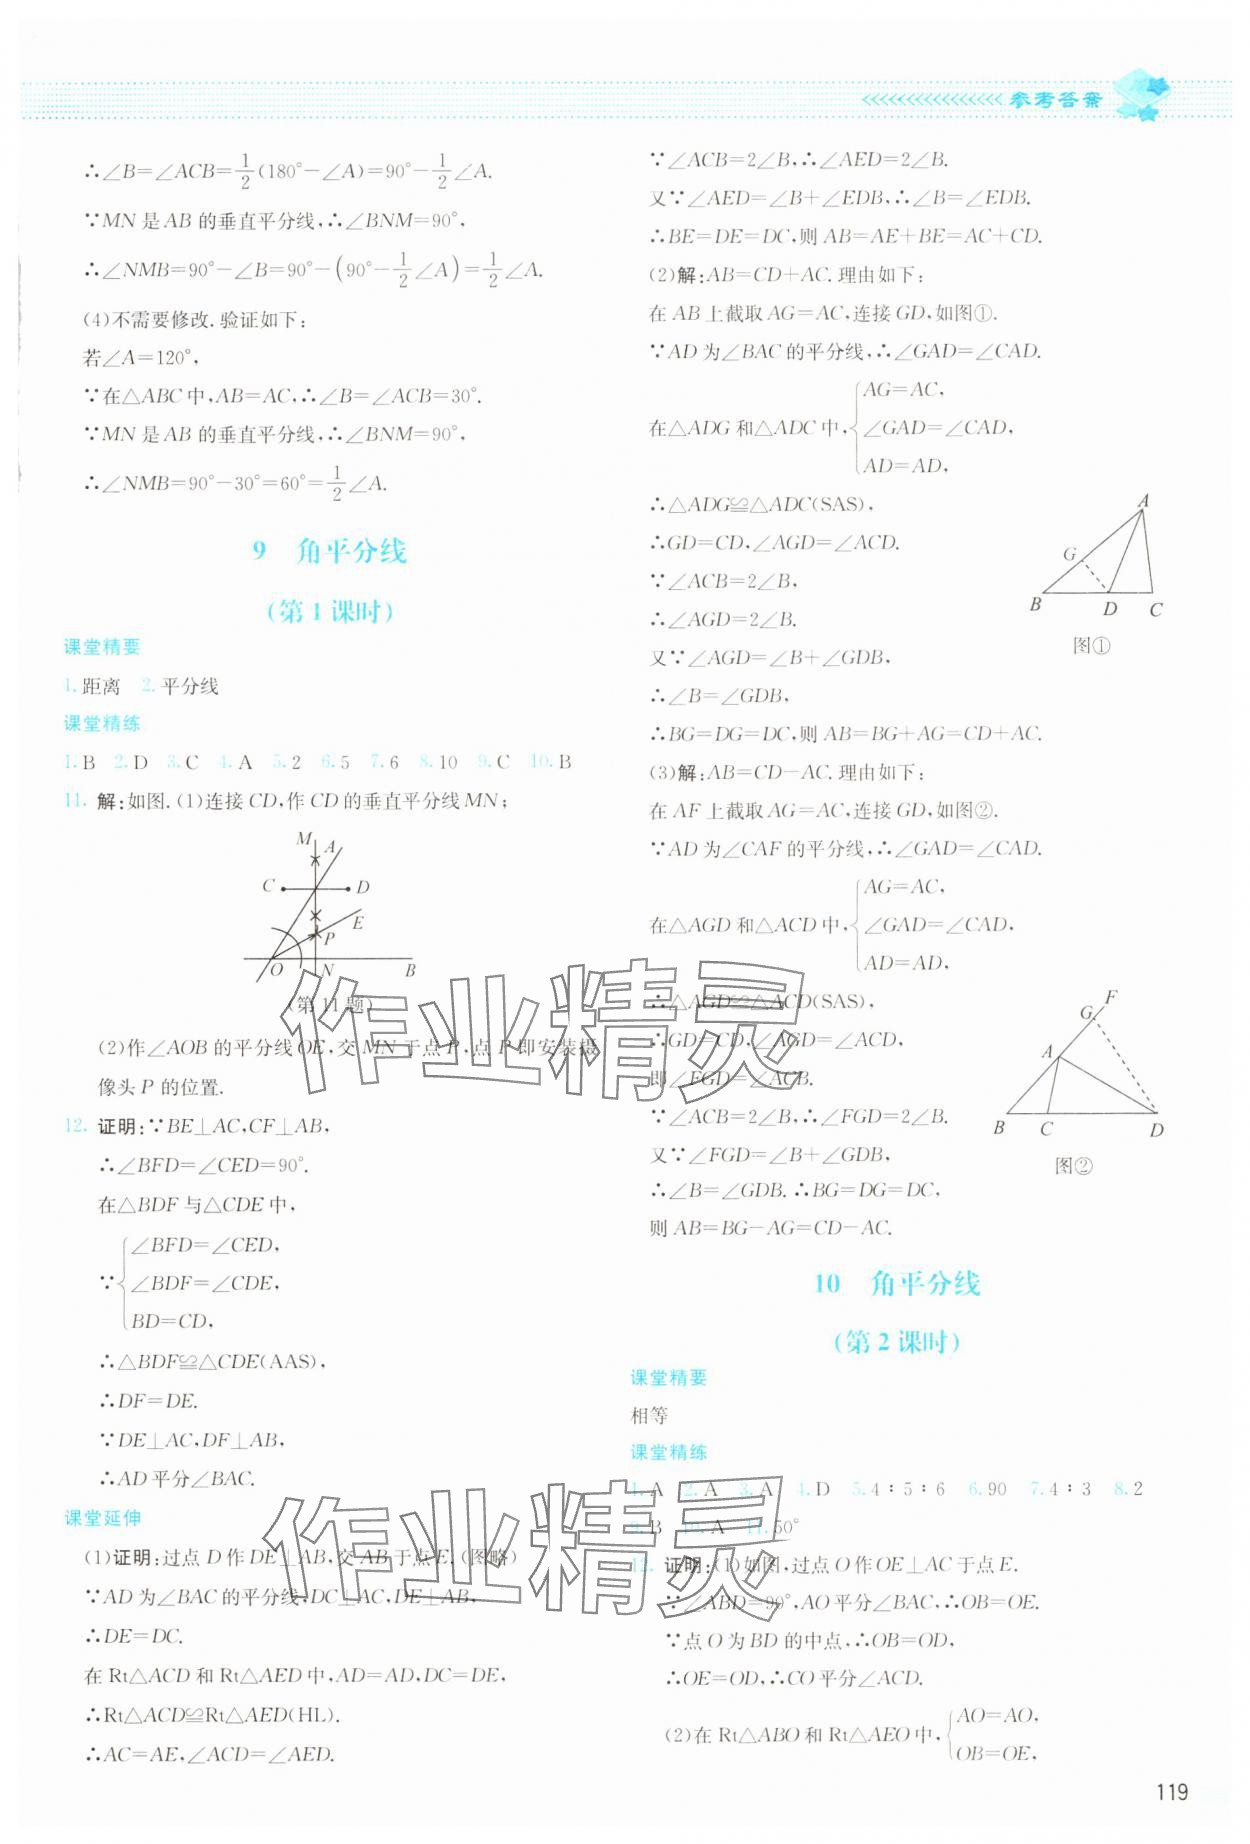 参考答案
∴∠B=∠ACB=1/2(180°-∠A)=90°-1/2∠A.
∵MN是AB的垂直平分线,∴∠BNM=90°,
∴∠NMB=90°-∠B=90°-(90°-1/2∠A)=1/2∠A.
(4)不需要修改.验证如下:
若∠A=120°,
∵在△ABC中,AB=AC,∴∠B=∠ACB=30°.
∵MN是AB的垂直平分线,∴∠BNM=90°,
∴∠NMB=90°-30°=60°=1/2∠A.
9 角平分线
(第1课时)
课堂精要
1.距离 2.平分线
课堂精练
1.B 2.D 3.C 4.A 5.2 6.5 7.6 8.10 9.C 10.B
11.解:如图.(1)连接CD,作CD的垂直平分线MN;
M A
C D
E
P
O N B
(第11题)
(2)作∠AOB的平分线OE,交MN于点P,点P即安装摄
像头P的位置.
12.证明:∵BE⊥AC,CF⊥AB,
∴∠BFD=∠CED=90°.
在△BDF与△CDE中,
∠BFD=∠CED,
∵{∠BDF=∠CDE,
BD=CD,
∴△BDF≌△CDE(AAS),
∴DF=DE.
∵DE⊥AC,DF⊥AB,
∴AD平分∠BAC.
课堂延伸
(1)证明:过点D作DE⊥AB,交AB于点E.(图略)
∵AD为∠BAC的平分线,DC⊥AC,DE⊥AB,
∴DE=DC.
在Rt△ACD和Rt△AED中,AD=AD,DC=DE,
∴Rt△ACD≌Rt△AED(HL).
∴AC=AE,∠ACD=∠AED.
∵∠ACB=2∠B,∴∠AED=2∠B.
又∵∠AED=∠B+∠EDB,∴∠B=∠EDB.
∴BE=DE=DC,则AB=AE+BE=AC+CD.
(2)解:AB=CD+AC.理由如下:
在AB上截取AG=AC,连接GD,如图①.
∵AD为∠BAC的平分线,∴∠GAD=∠CAD.
AG=AC,
在△ADG和△ADC中,{∠GAD=∠CAD,
AD=AD,
∴△ADG≌△ADC(SAS),
∴GD=CD,∠AGD=∠ACD.
∵∠ACB=2∠B,
∴∠AGD=2∠B.
又∵∠AGD=∠B+∠GDB,
∴∠B=∠GDB,
∴BG=DG=DC,则AB=BG+AG=CD+AC.
A
G
B D C
图①
(3)解:AB=CD-AC.理由如下:
在AF上截取AG=AC,连接GD,如图②.
∵AD为∠CAF的平分线,∴∠GAD=∠CAD.
AG=AC,
在△AGD和△ACD中,{∠GAD=∠CAD,
AD=AD,
∴△AGD≌△ACD(SAS),
∴GD=CD,∠AGD=∠ACD,
即∠FGD=∠ACB.
∵∠ACB=2∠B,∴∠FGD=2∠B.
又∵∠FGD=∠B+∠GDB,
∴∠B=∠GDB.∴BG=DG=DC,
则AB=BG-AG=CD-AC.
F
G
A
B C D
图②
10 角平分线
(第2课时)
课堂精要
相等
课堂精练
1.A 2.A 3.A 4.D 5.4:5:6 6.90 7.4:3 8.2
9.B 10.A 11.50°
12.证明:(1)如图,过点O作OE⊥AC于点E.
∵∠ABD=90°,AO平分∠BAC,∴OB=OE.
∵点O为BD的中点,∴OB=OD,
∴OE=OD,∴CO平分∠ACD.
(2)在Rt△ABO和Rt△AEO中,{AO=AO,
OB=OE,
119
作业精灵
作业精灵